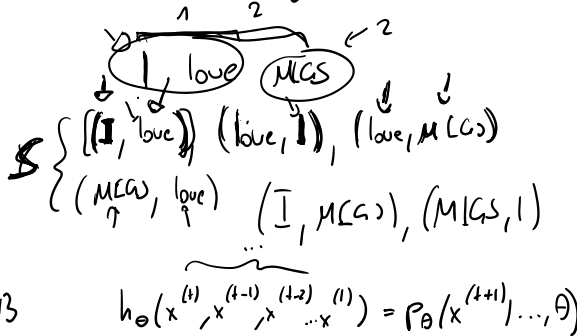 1 2
I love MLGS 2
S { [(I, love)] (love, I), (love, MLGS)
(MLGS, love) (I, MLGS), (MLGS, I)
...
13 h_θ(x^(t), x^(t-1), x^(t-2) ... x^(1)) = p_θ(x^(t+1) | ..., θ)